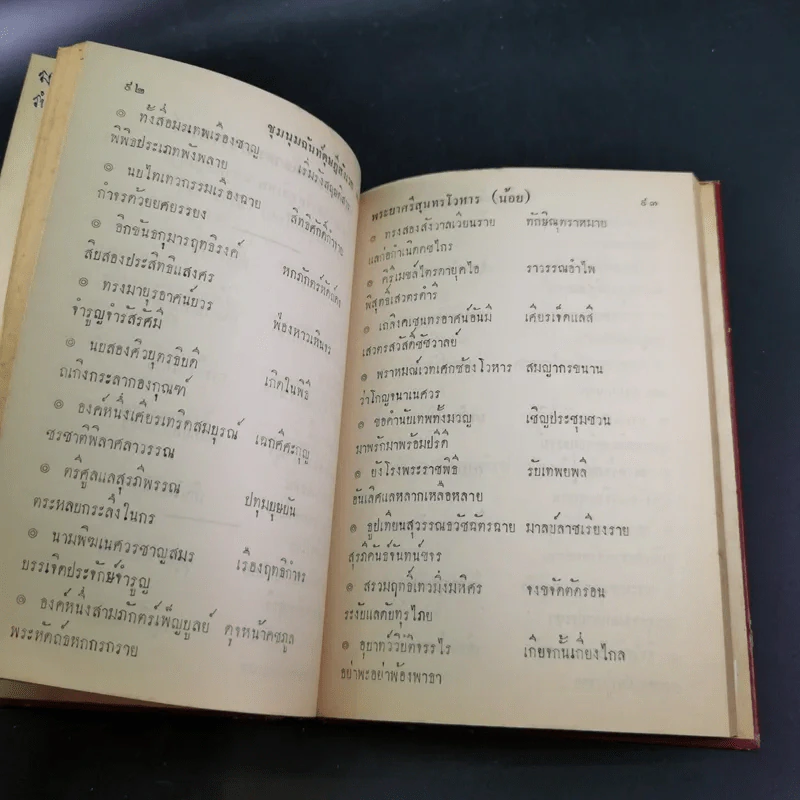 ๙๒
ชุมนุมฉันท์ดุษฎีสังเวย
๏ ทั้งสื่อมรเทพเรืองชาญ เริ่มรังสฤษดิ์สาร
พิพิธประเภทพังพลาย
๏ นยไทเทวกรรมเรืองฉาย สิทธิศักดิ์กำจาย
กำจรด้วยยศยรรยง
๏ อีกขันธกุมารฤทธิรงค์ หกภักตร์หัตถ์ทรง
สิบสองประสิทธิแสงศร
๏ ทรงมายุรอาศน์ยวร ฟ้องหาวเหินจร
จำรูญจำรัสรัศมี
๏ นยสองศิวบุตรธิบดี เกิดในพิธี
ณเกิงกระลากองกุณฑ์
๏ องค์หนึ่งเศียรเทริดสมบุรณ์ เฉกศีศะกุญ
ชรชาติพิลาศลาวรรณ
๏ ตรีศูลแลสุรภีพรรณ ปทุมบุษบัน
ตระหลบกระลึงในกร
๏ นามพิฆเนศวรชาญสมร เรืองฤทธิกำจร
บรรเจิดประจักษ์จำรูญ
๏ องค์หนึ่งสามภักตร์เพ็ญบูลย์ ดุจหน้าคชภูล
พระหัตถ์ธหกกรกราย
พระยาศรีสุนทรโวหาร (น้อย)
๙๓
๏ ทรงสองสังวาลเวียนราย ทักษิณุตราหมาย
แลก่อกำเนิดคชไกร
๏ คิริเมขล์ไตรดายุคไอ ราวรรณอำไพ
พิสุทธิ์เสวตรคำรี
๏ เถลิงคเชนทรอาศน์อันมี เศียรเจ็ดแลสี
เสวตรสวัสดิ์ชัชวาลย์
๏ พราหมณ์เวทเศกซ้องโวหาร สมญากรขนาน
ว่าโกญจนาเนศวร
๏ ขอคำนัยเทพทั้งมวญ เชิญประชุมชวน
มาพรักมาพร้อมปรีดิ์
๏ ยังโรงพระราชพิธี รับเทพยพลี
อันเลิศแลหลากเหลือหลาย
๏ ธูปเทียนสุวรรณธวัชฉัตรฉาย มาลย์ลาชเรียงราย
สุรภีคันธ์จันทน์ขจร
๏ สรวมฤทธิ์เทวมิ่งมหิศร จงขจัดตัดรอน
ระงับแลดับทุรไภย
๏ อุบาทว์วิบัติจรรไร เกียจกั้นเกี่ยงไกล
อย่าพะอย่าพ้องพาธา